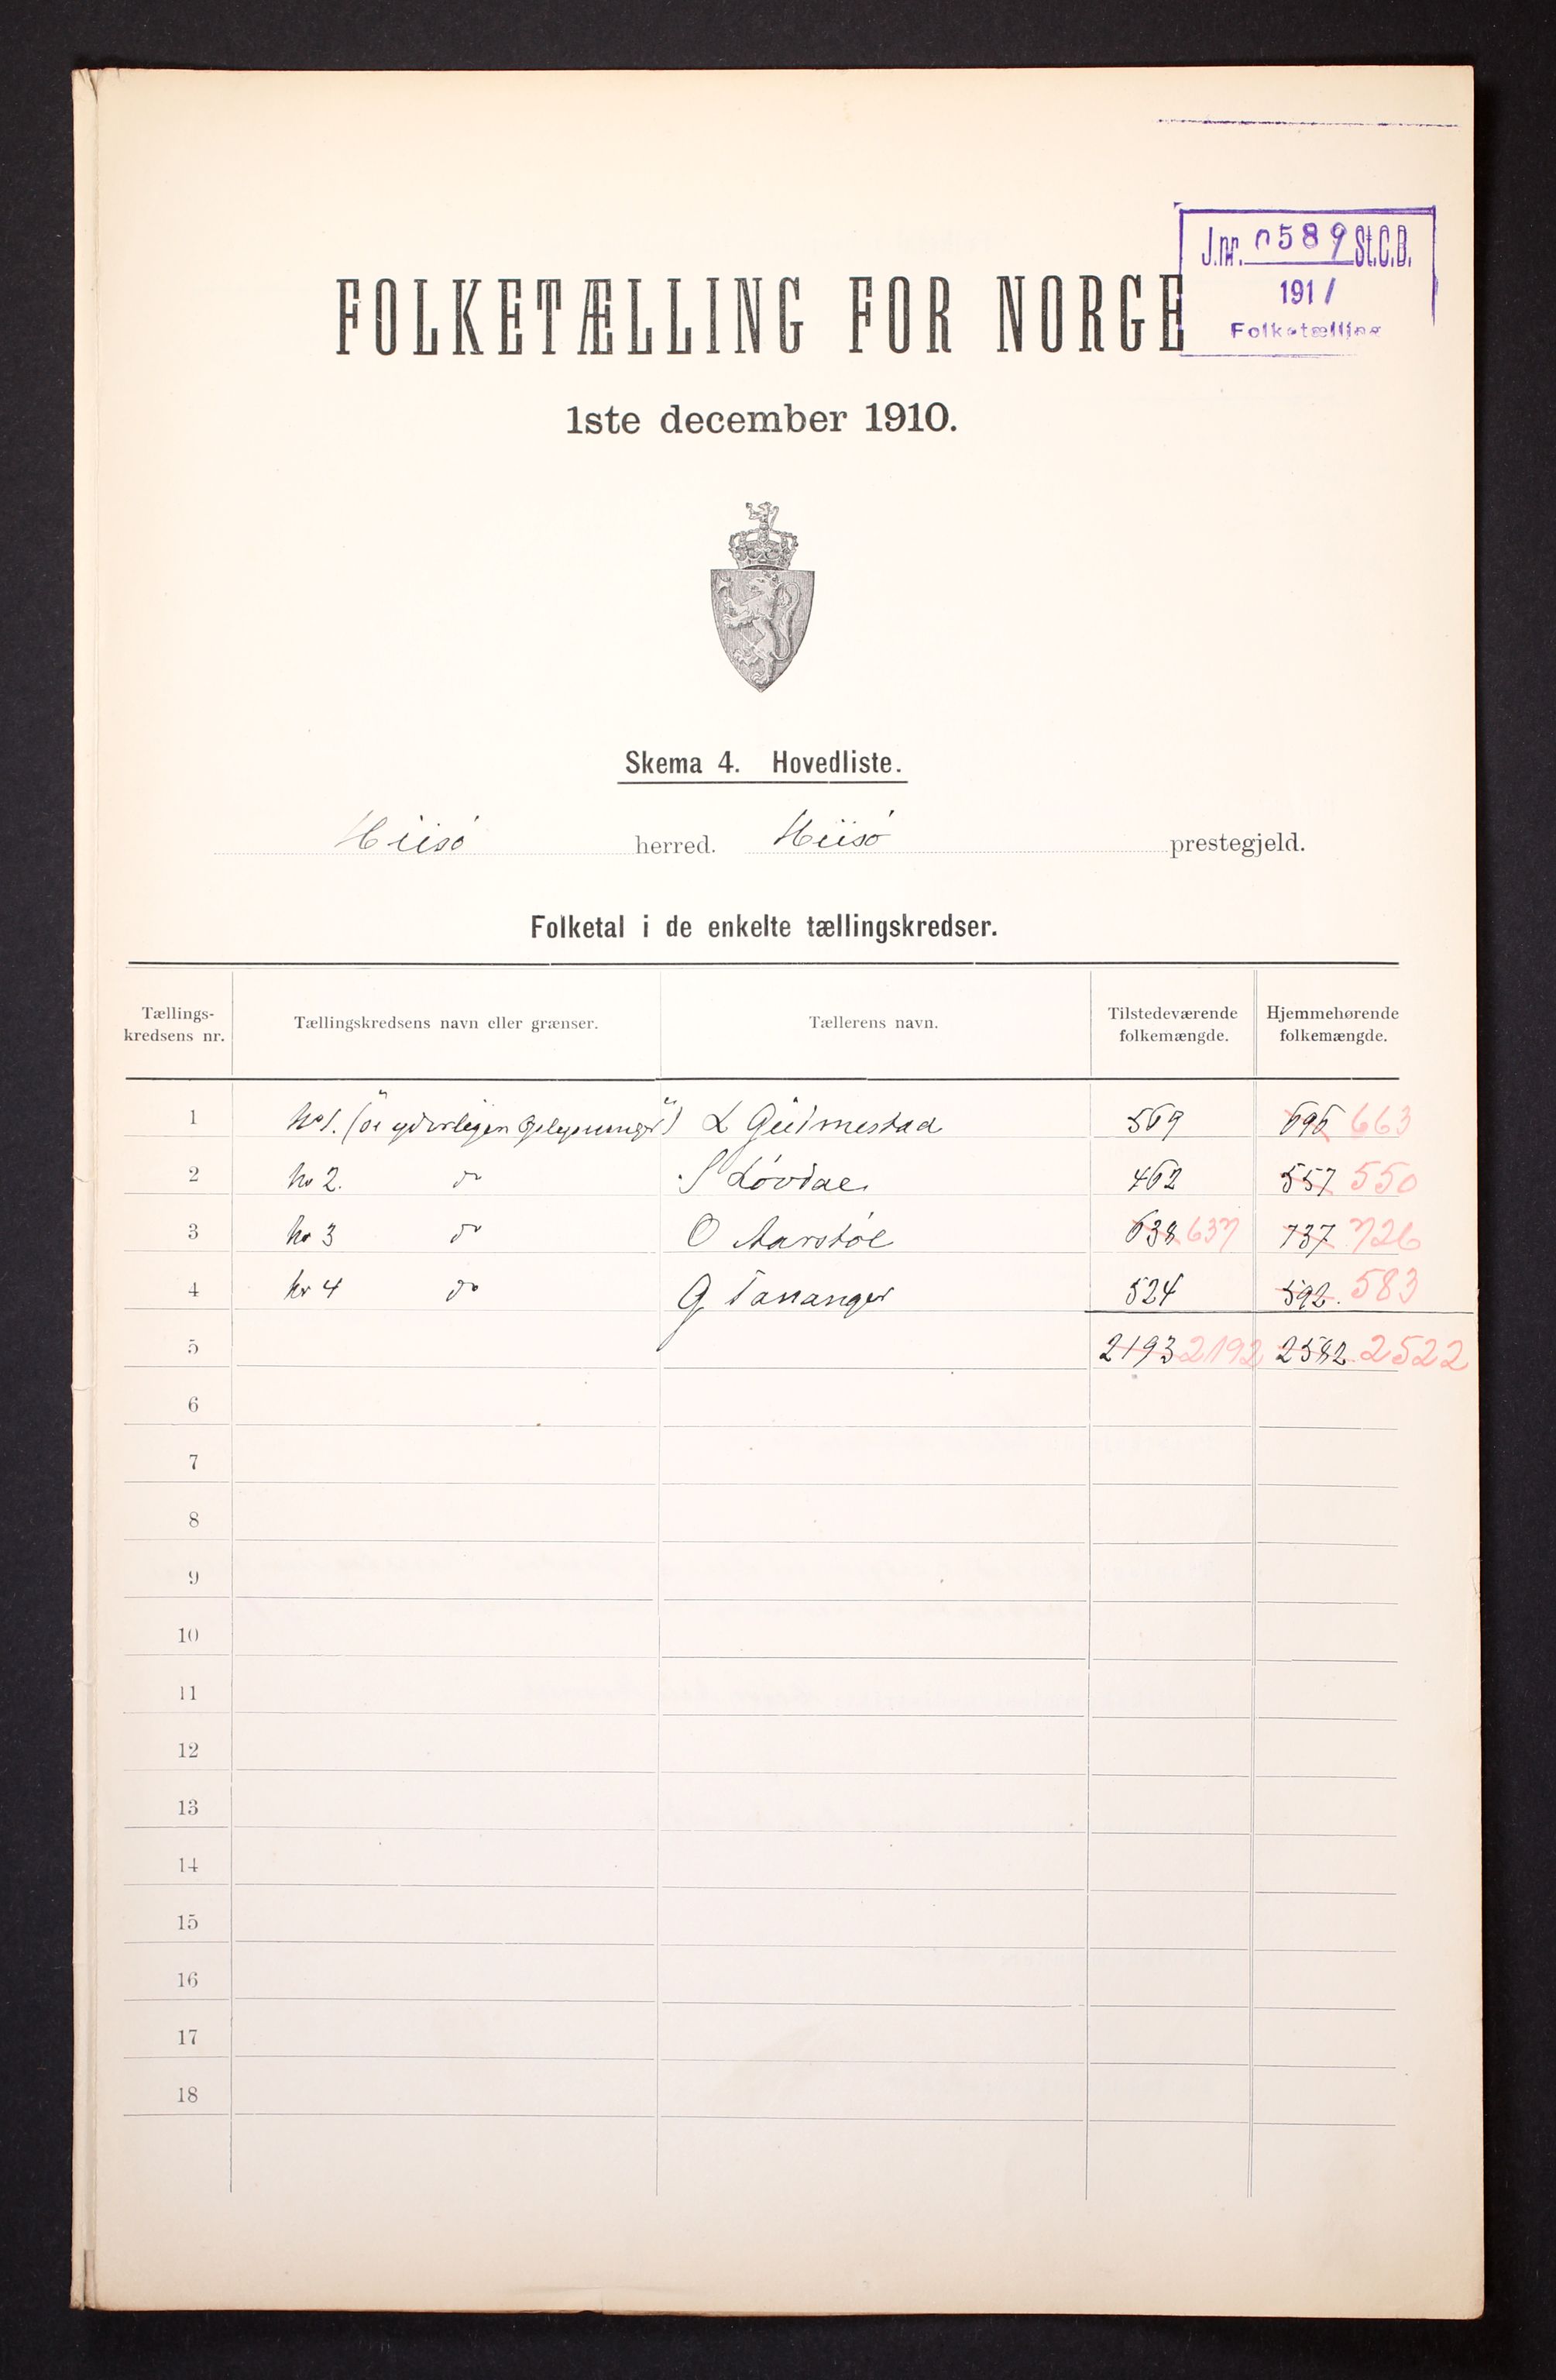 J.nr. 0589 St.C.B.
1911
Folketælling
FOLKETÆLLING FOR NORGE
1ste december 1910.
Skema 4. Hovedliste.
Hiisø herred. Hiisø prestegjeld.
Folketal i de enkelte tællingskredser.
Tællings-kredsens nr. Tællingskredsens navn eller grænser. Tællerens navn. Tilstedeværende folkemængde. Hjemmehørende folkemængde.
1 No 1. L Gudmestad 569 696 663
2 No 2. do S Løvdal 462 557 550
3 No 3 do O Aarstøl 638 637 737 726
4 No 4 do G Tananger 524 592. 583
5 2193 2192 2582 2522
6
7
8
9
10
11
12
13
14
15
16
17
18